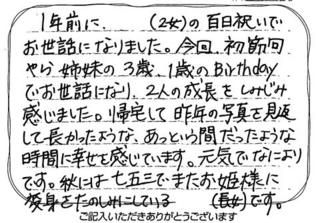 1年前に、(2女)の百日祝いで
お世話になりました。今回、初節句
やら姉妹の3歳、1歳のBirthday
でお世話になり、2人の成長をしみじみ
感じました。帰宅して昨年の写真を見返
して長かったような、あっという間だったような
時間に幸せを感じています。元気でなにより
です。秋には七五三でまたお姫様に
変身をたのしみにしている (長女)です。
ご記入いただきありがとうございます